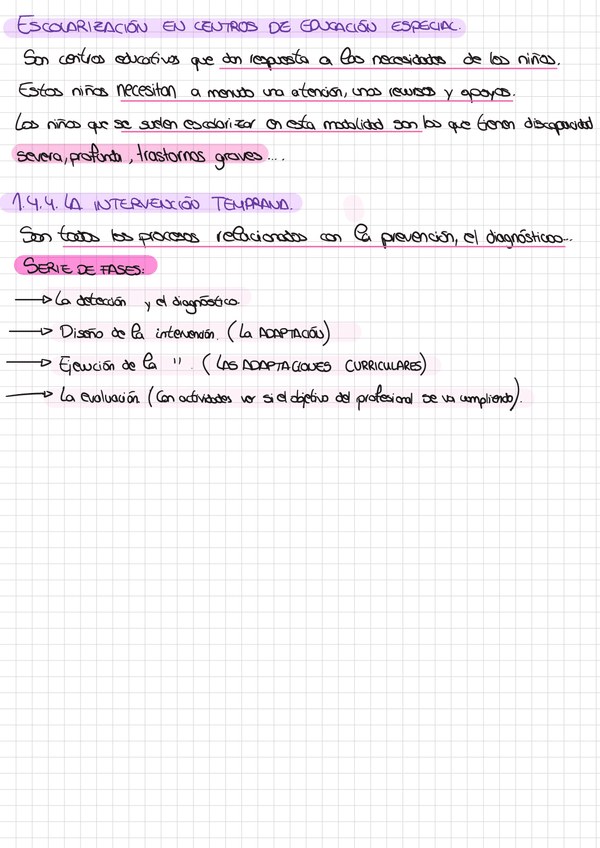 ESCOLARIZACIÓN EN CENTROS DE EDUCACIÓN ESPECIAL.
Son centros educativos que dan respuesta a las necesidades de los niños.
Estos niños necesitan a menudo una atención, unos recursos y apoyos.
Los niños que se suelen escolarizar en esta modalidad son los que tienen discapacidad
severa, profunda, trastornos graves....
1.4.4. LA INTERVENCIÓN TEMPRANA.
Son todos los procesos relacionados con la prevención, el diagnósticos...
SERIE DE FASES:
→ La detección y el diagnóstico.
→ Diseño de la intervención. (La ADAPTACIÓN)
→ Ejecución de la " . (LAS ADAPTACIONES CURRICULARES)
→ La evaluación (Con actividades ver si el objetivo del profesional se va cumpliendo).